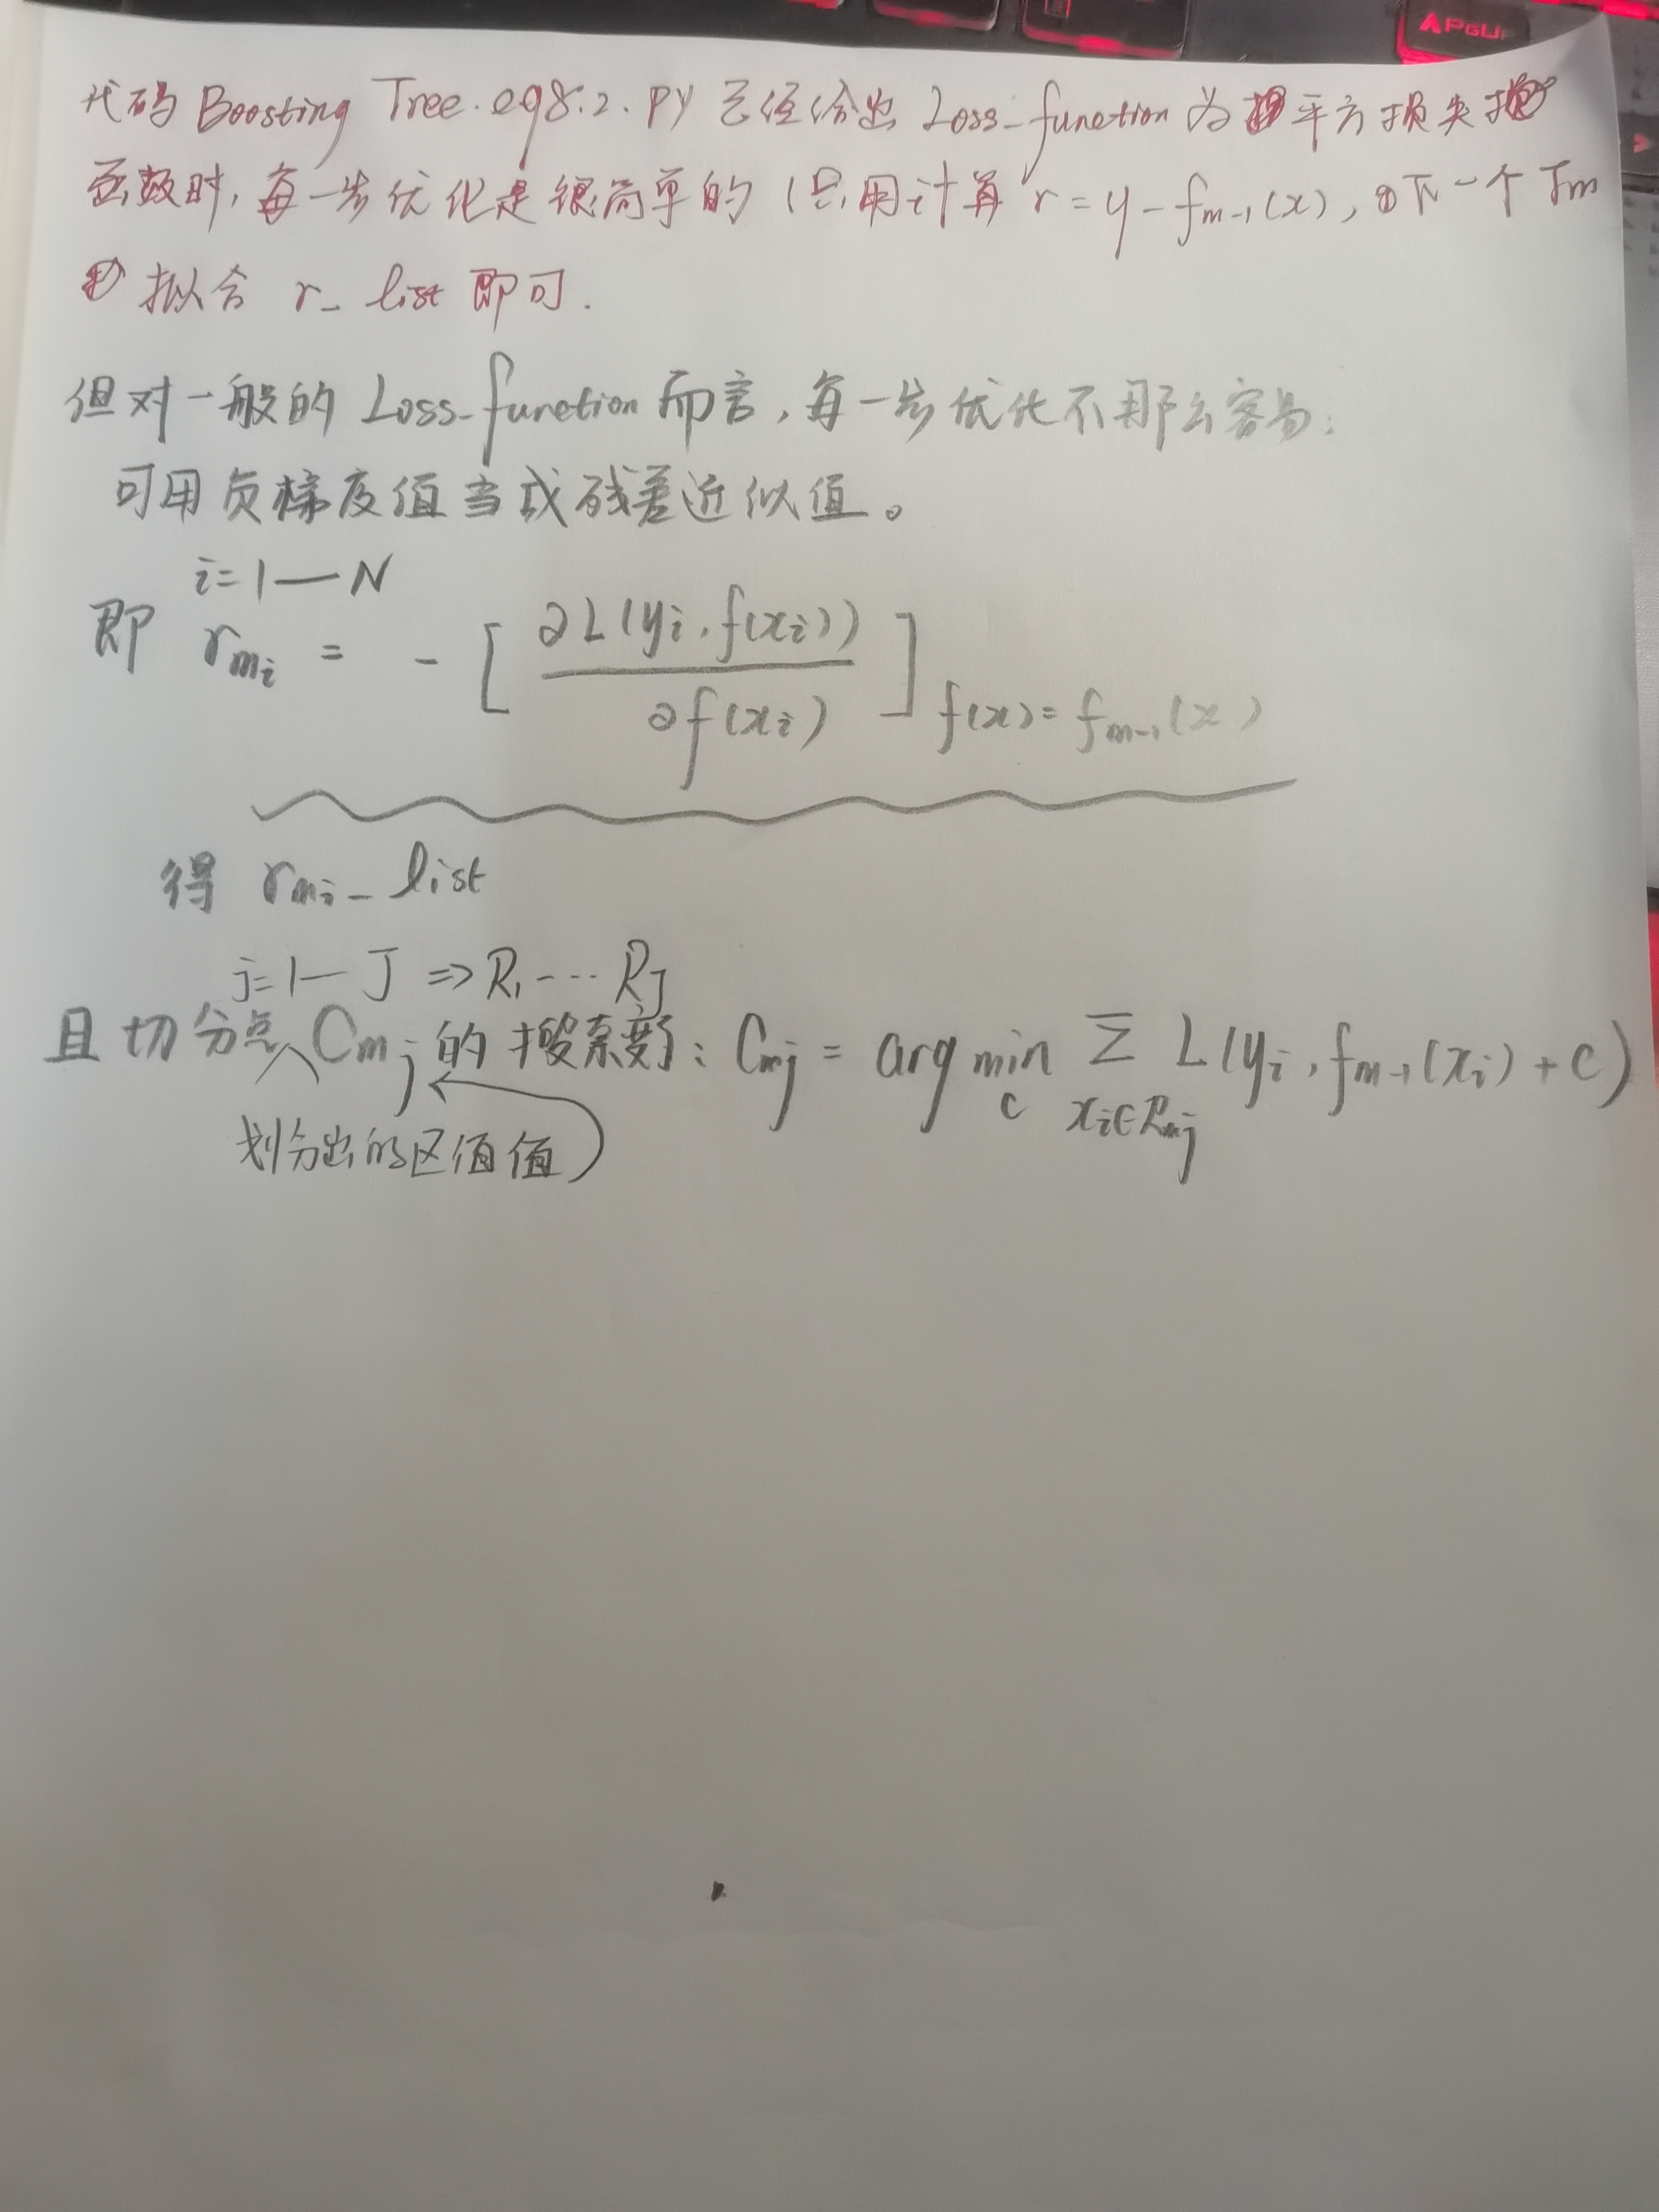 PGUP
代码 Boosting Tree.eg8.2.py 已经给出 Loss_function 为平方损失
函数时,每一步优化是很简单的(只用计算 r = y - f_{m-1}(x),下一个 T_m
拟合 r_list 即可.
但对一般的 Loss_function 而言,每一步优化不那么容易:
可用负梯度值当成残差近似值。
i=1—N
即 r_{mi} = - [ ∂L(y_i, f(x_i)) / ∂f(x_i) ]_{f(x)=f_{m-1}(x)}
得 r_{mi}_list
j=1—J ⇒ R_1 ... R_J
且切分点 C_{mj} 的搜索变了: C_{mj} = arg min_c Σ_{x_i∈R_{mj}} L(y_i, f_{m-1}(x_i)+c)
划分出的区值值